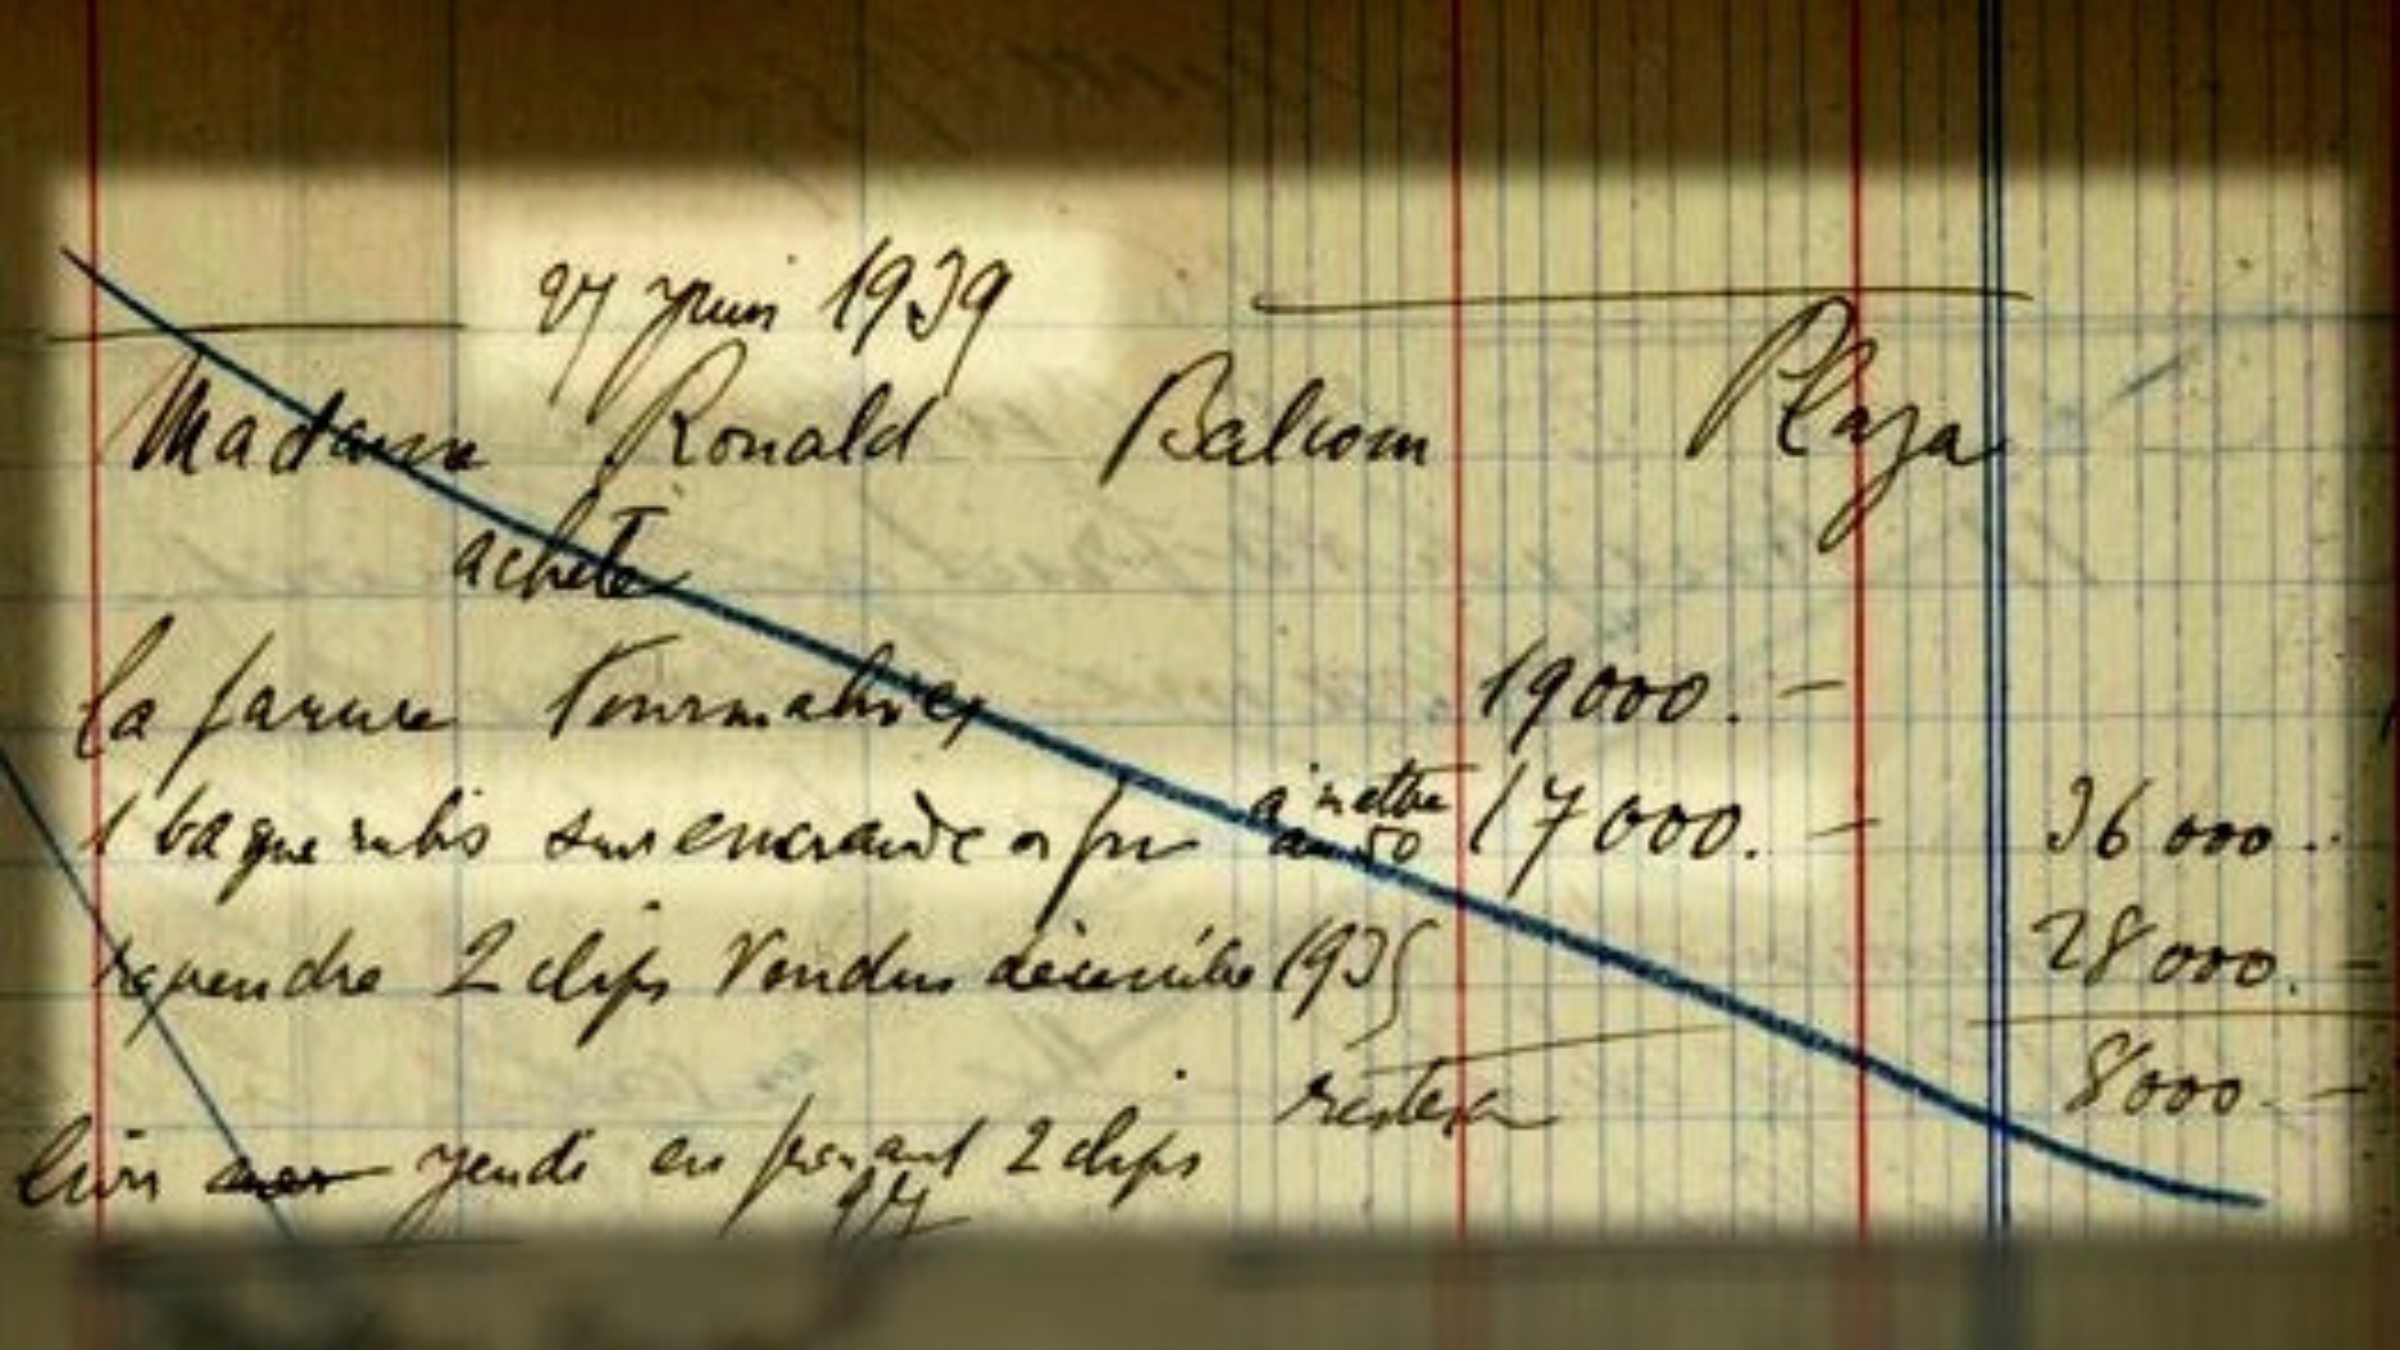 27 juin 1939
Madame Ronald Balcom Plaza
achète
la parure Tourmalines 19000. —
1 bague rubis sur emeraude or gris à mettre au 50 17000. — 36 000. -
reprendre 2 clips Vendus décembre 1935 28 000. —
restera 8000. —
livré jeudi en prenant 2 clips